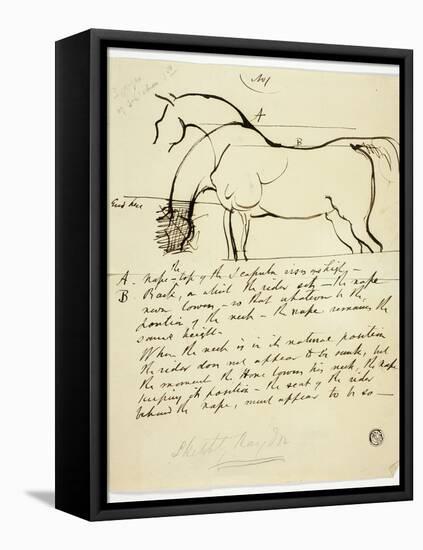 No 1
A
B
A. Nape the top of the Scapula rises as high –
B Back, on which the rider sets – the nape
never lowers – so that whatever be the
position of the neck – the nape remains the
same height –
When the neck is in its natural position
the rider does not appear to be sunk, but
the moment the Horse lowers his neck, the nape
keeping its position – the seat of the rider
behind the nape, must appear to be so –
Sketch by Haydon